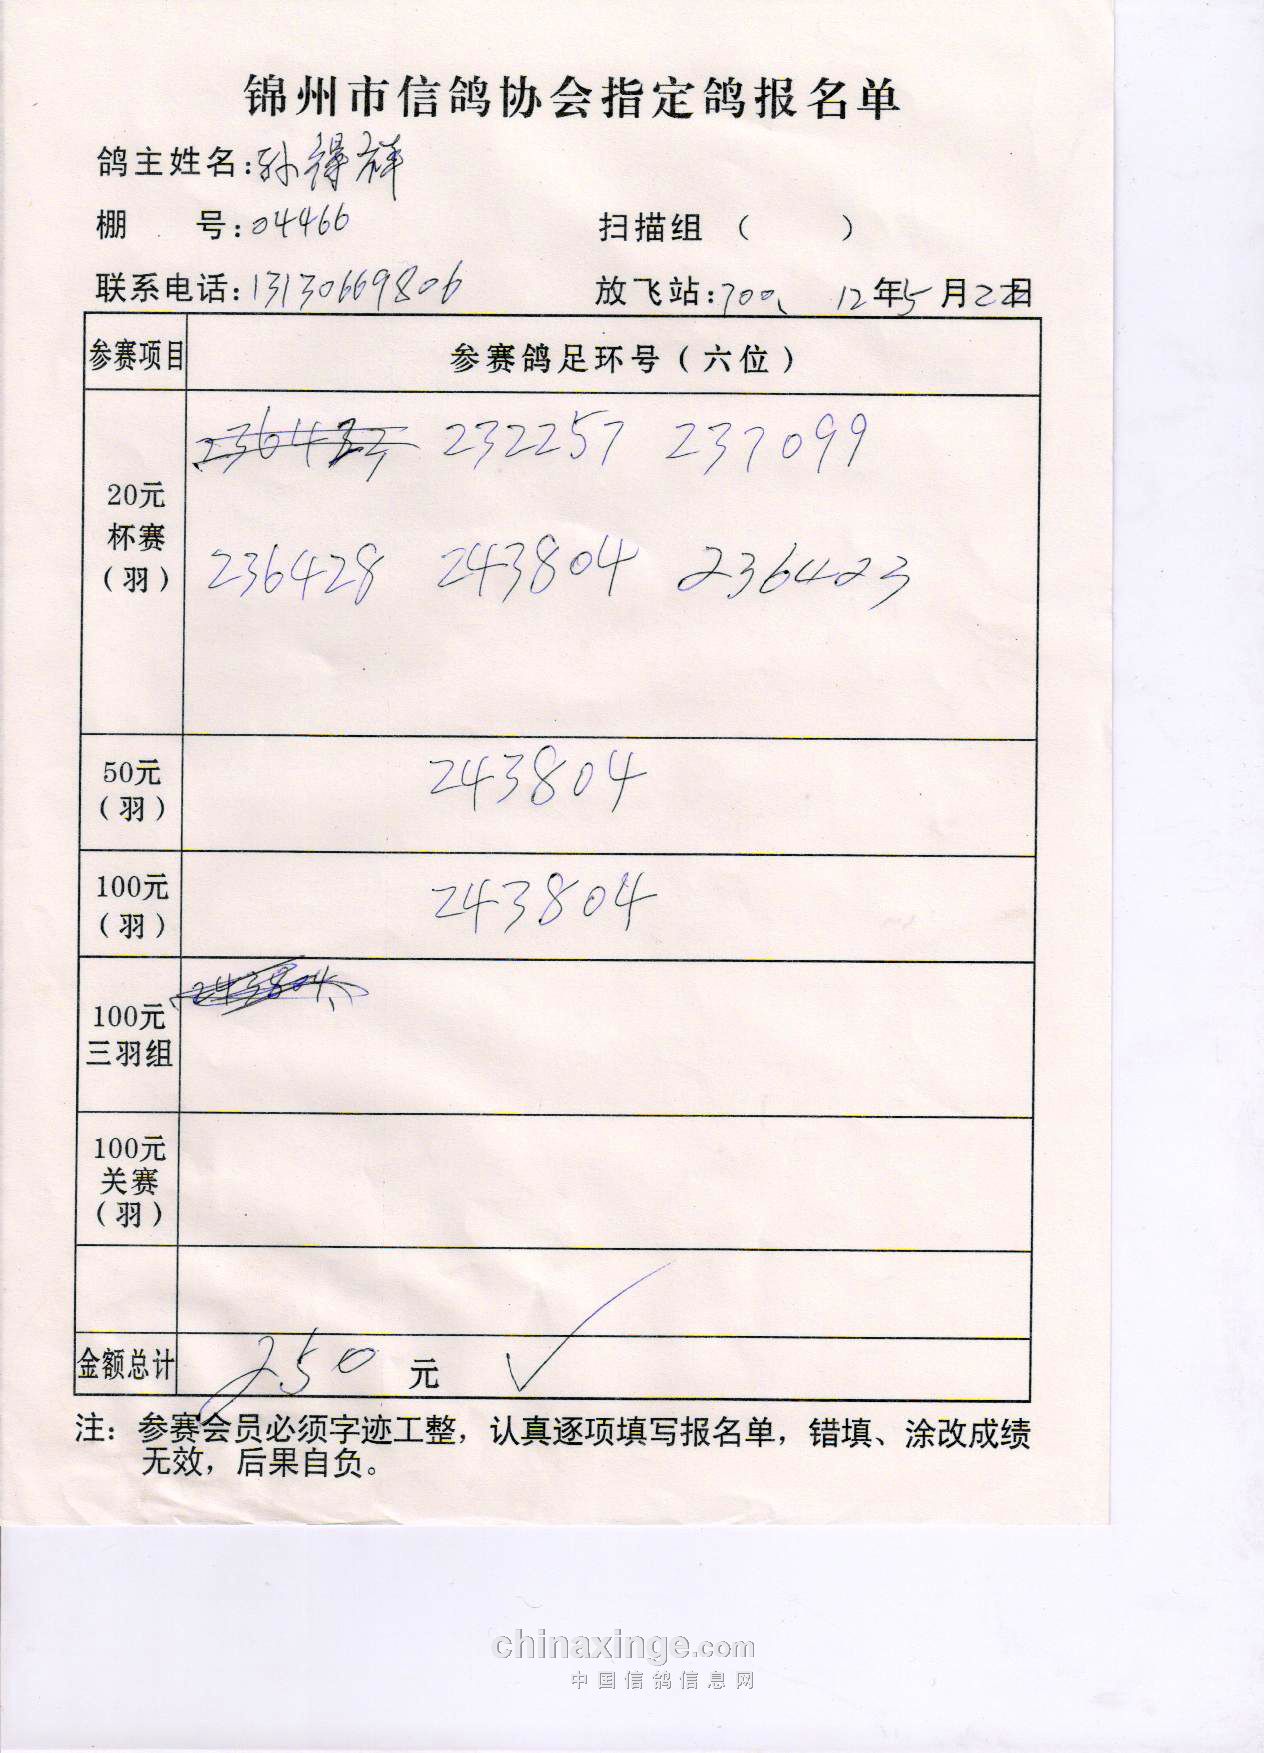 锦州市信鸽协会指定鸽报名单
鸽主姓名:孙得祥
棚 号:04466
扫描组 ( )
联系电话:13130669806
放飞站:700、 12年5月22日
参赛项目 参赛鸽足环号(六位)
20元
杯赛
(羽)
232257 237099
236428 243804 236423
50元
(羽)
243804
100元
(羽)
243804
243804
100元
三羽组
100元
关赛
(羽)
金额总计 250 元 ✓
注: 参赛会员必须字迹工整, 认真逐项填写报名单, 错填、涂改成绩
无效, 后果自负。
chinaxinge.com
中国信鸽信息网